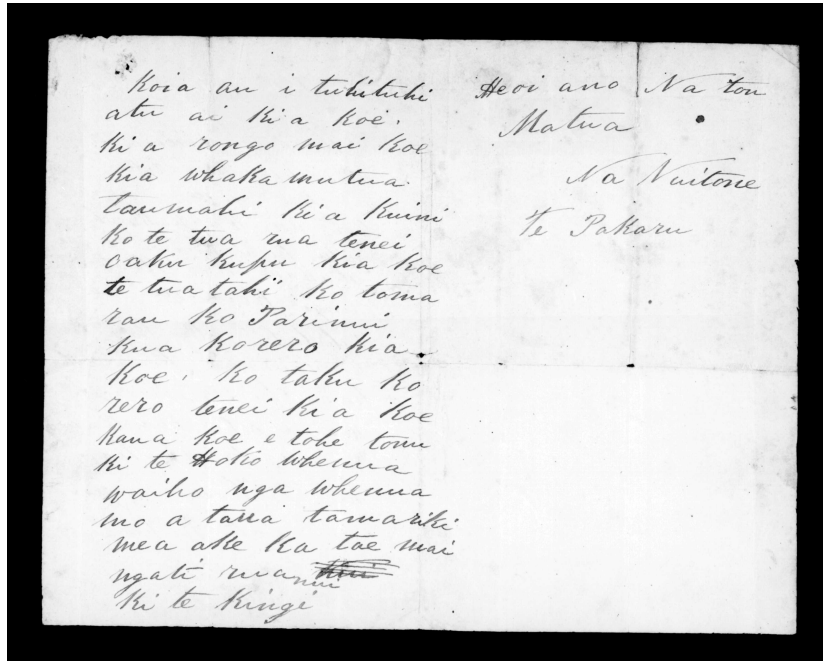 Koia au i tuhituhi
atu ai Kia Koe.
Kia rongo mai Koe
Kia whaka mutua
taumahi Kia Kuini
Ko te tua rua tenei
oaku Kupu Kia Koe
te tua tahi Ko toma
rau Ko Parinui
Kua Korero Kia
Koe. Ko taku Ko
rero tenei Kia Koe
Kaua Koe e tohe tonu
Ki te Hoko whenua
waiho nga whenua
mo a taua tamariki
mea ake Ka tae mai
ngati rua nui
Ki te Kingi
Heoi ano Na tou
Matua
Na Nuitone
Te Pakaru